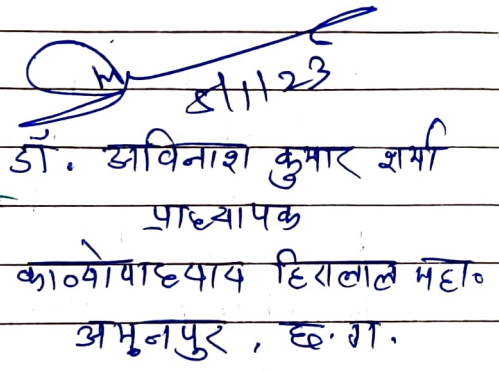 8/1/23
डॉ. अविनाश कुमार शर्मा
प्राध्यापक
काव्योपाध्याय हिरालाल महा०
अभनपुर, छ.ग.